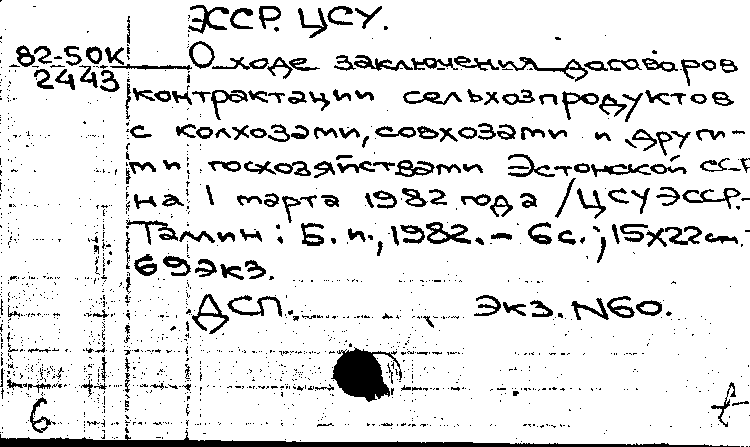 ЭССР. ЦСУ.
82-50К
2443
О ходе заключения дагаваров
контрактации сельхозпродуктов
с колхозами, совхозами и други-
ми госхозяйствами Эстонской ССР
на 1 марта 1982 года /ЦСУ ЭССР.-
Таллин: Б. и., 1982. - 6 с.; 15х22 см.-
69 экз.
ДСП. Экз. N60.
6